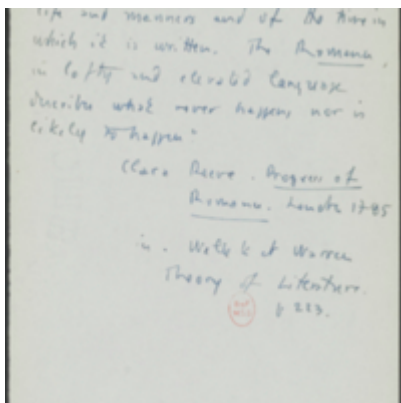 life and manners and of the time in
which it is written. The Romance,
in lofty and elevated language
describes what never happens nor is
likely to happen"
Clara Reeve. Progress of
Romance. London 1785
in. Wellek et Warren
Theory of Literature.
p 223.